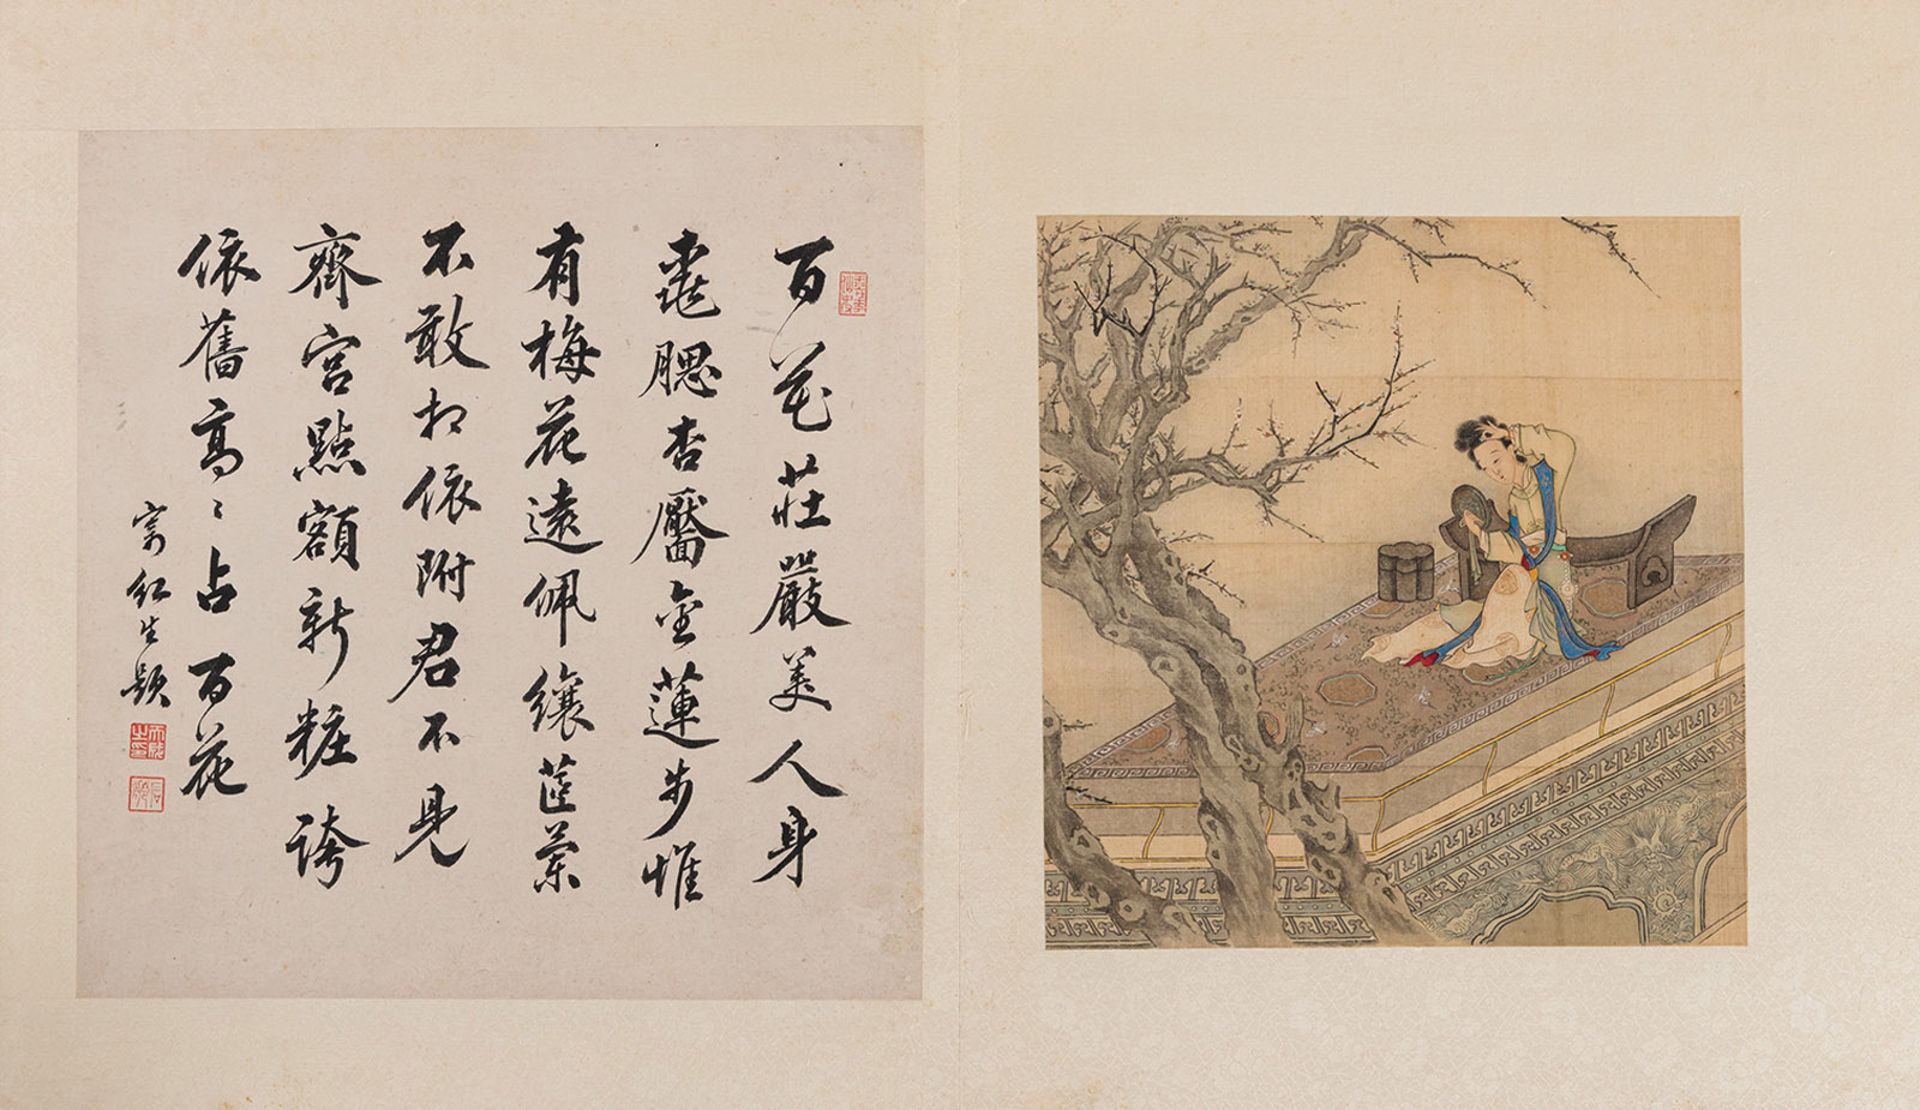 百花莊嚴美人身
桃腮杏靨金蓮步惟
有梅花遠佩纕茝蘭
不敢相依附君不見
齊宮點額新粧誇
依舊高〻占百花
寄紅生題